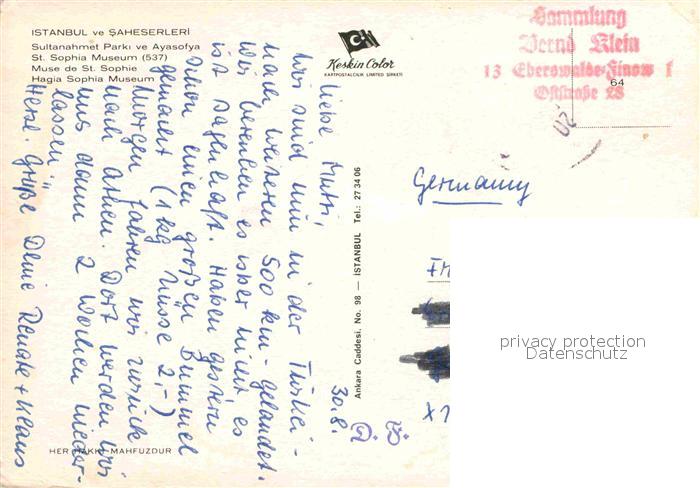 ISTANBUL ve ŞAHESERLERİ
Sultanahmet Parkı ve Ayasofya
St. Sophia Museum (537)
Muse de St. Sophie
Hagia Sophia Museum
Keskin Color
KARTPOSTALCILIK LIMITED ŞİRKETİ
Sammlung
Bernd Klein
13 Eberswalde-Finow 1
Oststraße 28
64
30.8.
Liebe Mutti,
wir sind nun in der Türkei -
nach weiteren 500 km - gelandet.
Wir bereuen es aber nicht, es
ist sagenhaft. Haben gestern
schon einen großen Bummel
gemacht (1 kg Nüsse 2,-)
Morgen fahren wir zurück
nach Athen. Dort werden wir
uns dann 2 Wochen nieder-
lassen.
Herzl. Grüße Deine Renate + Klaus
D. F.
Ankara Caddesi. No. 98 — İSTANBUL Tel.: 27 34 06
Germany
HER HAKKI MAHFUZDUR
privacy protection
Datenschutz